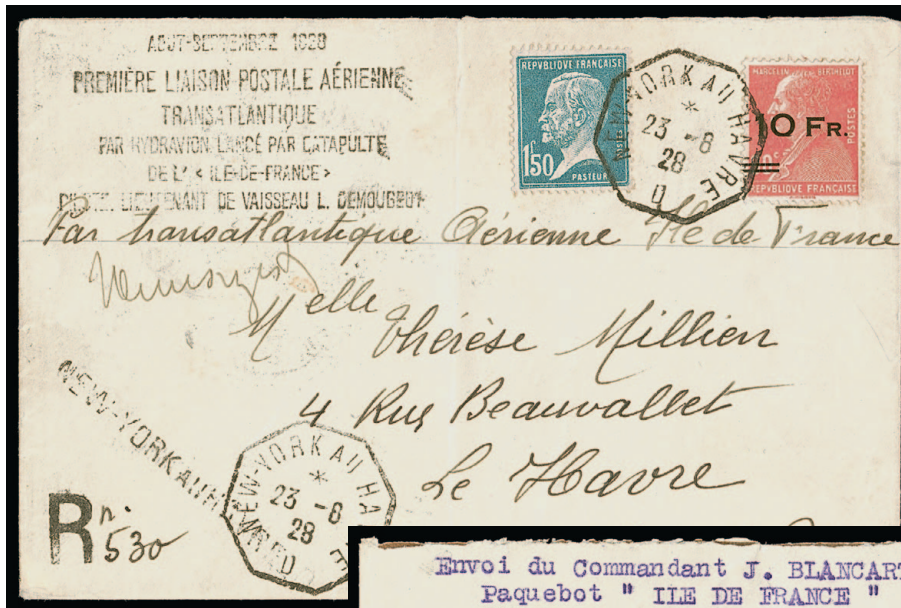 AOUT-SEPTEMBRE 1928
PREMIÈRE LIAISON POSTALE AÉRIENNE
TRANSATLANTIQUE
PAR HYDRAVION LANCÉ PAR CATAPULTE
DE L' « ILE-DE-FRANCE »
PILOTE: LIEUTENANT DE VAISSEAU L. DEMOUGEOT
REPVBLIQUE FRANÇAISE
1F50
PASTEUR
NEW-YORK AU HAVRE
*
23 -8
28
D
MARCELIN BERTHELOT
10 FR.
POSTES
REPVBLIQUE FRANÇAISE
Par transatlantique Aérienne Ile de France
Demougeot
Melle Thérèse Millien
4 Rue Beauvallet
Le Havre
NEW-YORK AU HAVRE D
R n. 530
NEW-YORK AU HA
*
23 -8
28
D
Envoi du Commandant J. BLANCART
Paquebot " ILE DE FRANCE "